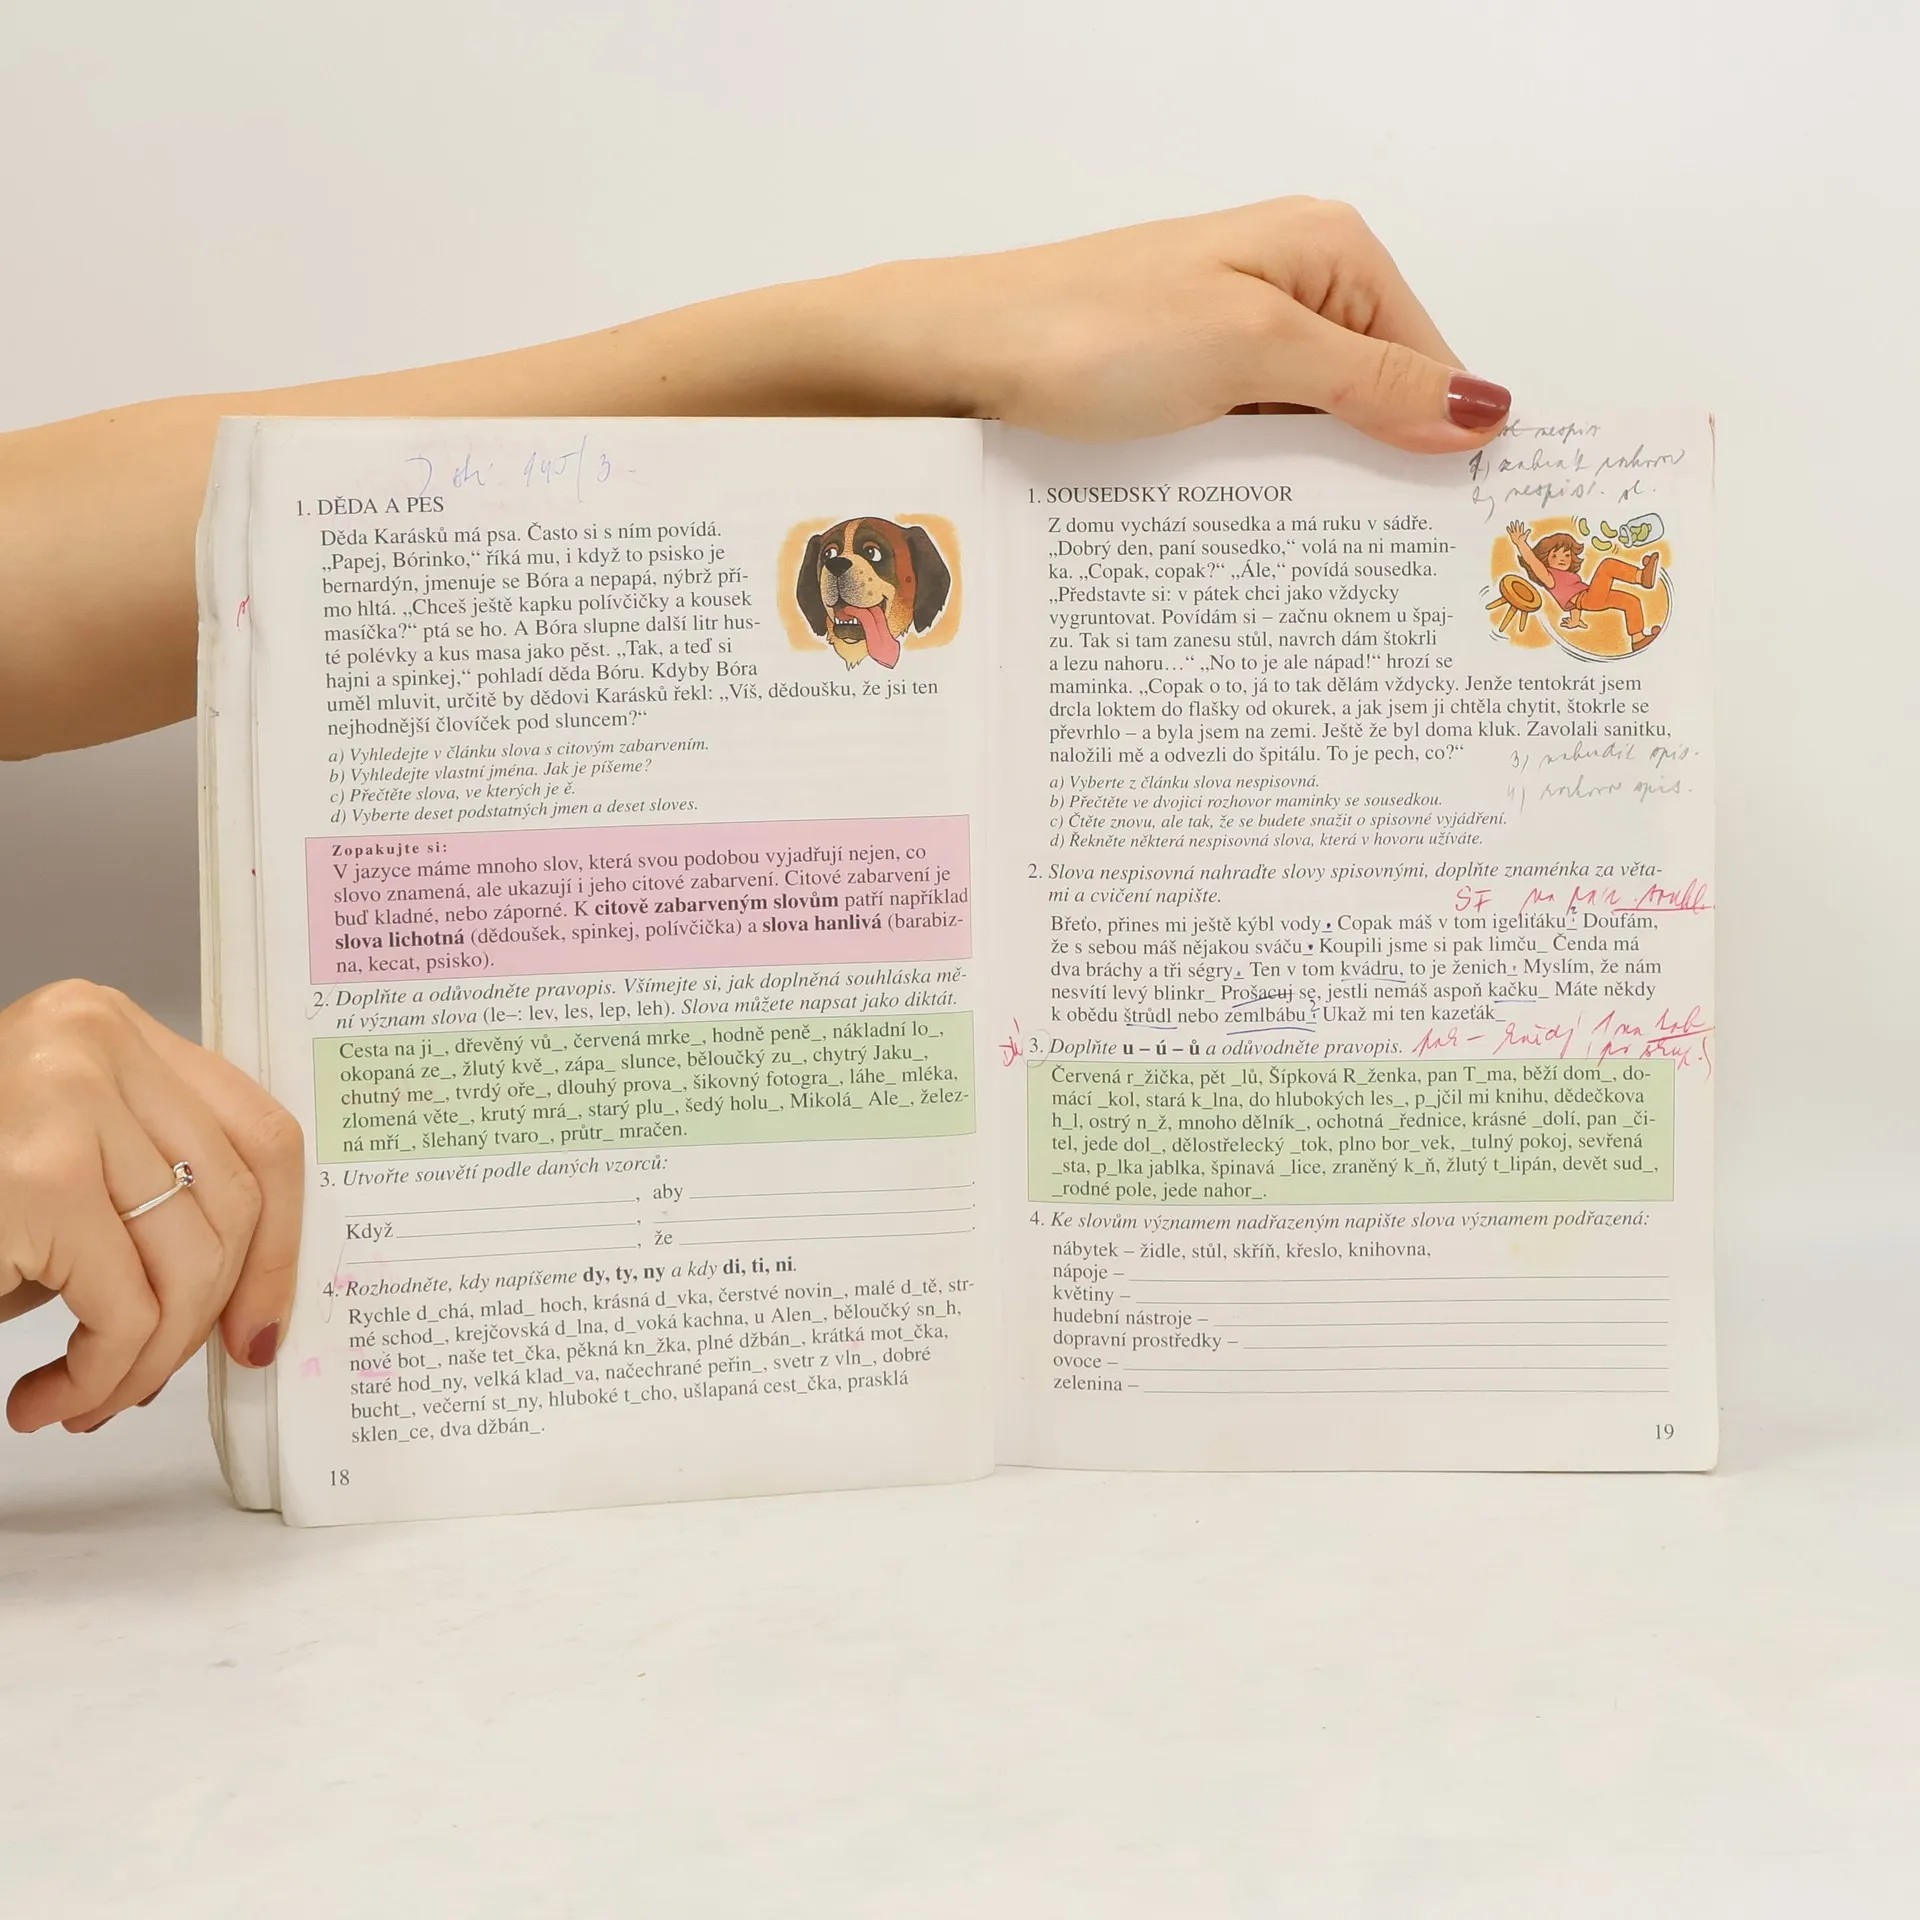 1. DĚDA A PES
Děda Karásků má psa. Často si s ním povídá.
„Papej, Bórinko,“ říká mu, i když to psisko je
bernardýn, jmenuje se Bóra a nepapá, nýbrž pří-
mo hltá. „Chceš ještě kapku polívčičky a kousek
masíčka?“ ptá se ho. A Bóra slupne další litr hus-
té polévky a kus masa jako pěst. „Tak, a teď si
hajni a spinkej,“ pohladí děda Bóru. Kdyby Bóra
uměl mluvit, určitě by dědovi Karásků řekl: „Víš, dědoušku, že jsi ten
nejhodnější človíček pod sluncem?“
a) Vyhledejte v článku slova s citovým zabarvením.
b) Vyhledejte vlastní jména. Jak je píšeme?
c) Přečtěte slova, ve kterých je ě.
d) Vyberte deset podstatných jmen a deset sloves.
Zopakujte si:
V jazyce máme mnoho slov, která svou podobou vyjadřují nejen, co
slovo znamená, ale ukazují i jeho citové zabarvení. Citové zabarvení je
buď kladné, nebo záporné. K citově zabarveným slovům patří například
slova lichotná (dědoušek, spinkej, polívčička) a slova hanlivá (barabiz-
na, kecat, psisko).
2. Doplňte a odůvodněte pravopis. Všímejte si, jak doplněná souhláska mě-
ní význam slova (le–: lev, les, lep, leh). Slova můžete napsat jako diktát.
Cesta na ji_, dřevěný vů_, červená mrke_, hodně peně_, nákladní lo_,
okopaná ze_, žlutý kvě_, zápa_ slunce, běloučký zu_, chytrý Jaku_,
chutný me_, tvrdý oře_, dlouhý prova_, šikovný fotogra_, láhe_ mléka,
zlomená věte_, krutý mrá_, starý plu_, šedý holu_, Mikolá_ Ale_, želez-
ná mří_, šlehaný tvaro_, průtr_ mračen.
3. Utvořte souvětí podle daných vzorců:
____________, aby ____________.
Když ____________, ____________.
____________, že ____________.
4. Rozhodněte, kdy napíšeme dy, ty, ny a kdy di, ti, ni.
Rychle d_chá, mlad_ hoch, krásná d_vka, čerstvé novin_, malé d_tě, str-
mé schod_, krejčovská d_lna, d_voká kachna, u Alen_, běloučký sn_h,
nové bot_, naše tet_čka, pěkná kn_žka, plné džbán_, krátká mot_čka,
staré hod_ny, velká klad_va, načechrané peřin_, svetr z vln_, dobré
bucht_, večerní st_ny, hluboké t_cho, ušlapaná cest_čka, prasklá
sklen_ce, dva džbán_.
18
nespis
1. SOUSEDSKÝ ROZHOVOR
Z domu vychází sousedka a má ruku v sádře.
„Dobrý den, paní sousedko,“ volá na ni mamin-
ka. „Copak, copak?“ „Ále,“ povídá sousedka.
„Představte si: v pátek chci jako vždycky
vygruntovat. Povídám si – začnu oknem u špaj-
zu. Tak si tam zanesu stůl, navrch dám štokrli
a lezu nahoru…“ „No to je ale nápad!“ hrozí se
maminka. „Copak o to, já to tak dělám vždycky. Jenže tentokrát jsem
drcla loktem do flašky od okurek, a jak jsem ji chtěla chytit, štokrle se
převrhlo – a byla jsem na zemi. Ještě že byl doma kluk. Zavolali sanitku,
naložili mě a odvezli do špitálu. To je pech, co?“
a) Vyberte z článku slova nespisovná.
b) Přečtěte ve dvojici rozhovor maminky se sousedkou.
c) Čtěte znovu, ale tak, že se budete snažit o spisovné vyjádření.
d) Řekněte některá nespisovná slova, která v hovoru užíváte.
2. Slova nespisovná nahraďte slovy spisovnými, doplňte znaménka za věta-
mi a cvičení napište.
Břeťo, přines mi ještě kýbl vody. Copak máš v tom igeliťáku? Doufám,
že s sebou máš nějakou sváču. Koupili jsme si pak limču_ Čenda má
dva bráchy a tři ségry. Ten v tom kvádru, to je ženich. Myslím, že nám
nesvítí levý blinkr_ Prošacuj se, jestli nemáš aspoň kačku_ Máte někdy
k obědu štrúdl nebo zemlbábu? Ukaž mi ten kazeťák_
3. Doplňte u – ú – ů a odůvodněte pravopis.
Červená r_žička, pět _lů, Šípková R_ženka, pan T_ma, běží dom_, do-
mácí _kol, stará k_lna, do hlubokých les_, p_jčil mi knihu, dědečkova
h_l, ostrý n_ž, mnoho dělník_, ochotná _řednice, krásné _dolí, pan _či-
tel, jede dol_, dělostřelecký _tok, plno bor_vek, _tulný pokoj, sevřená
_sta, p_lka jablka, špinavá _lice, zraněný k_ň, žlutý t_lipán, devět sud_,
_rodné pole, jede nahor_.
4. Ke slovům významem nadřazeným napište slova významem podřazená:
nábytek – židle, stůl, skříň, křeslo, knihovna,
nápoje –
květiny –
hudební nástroje –
dopravní prostředky –
ovoce –
zelenina –
19